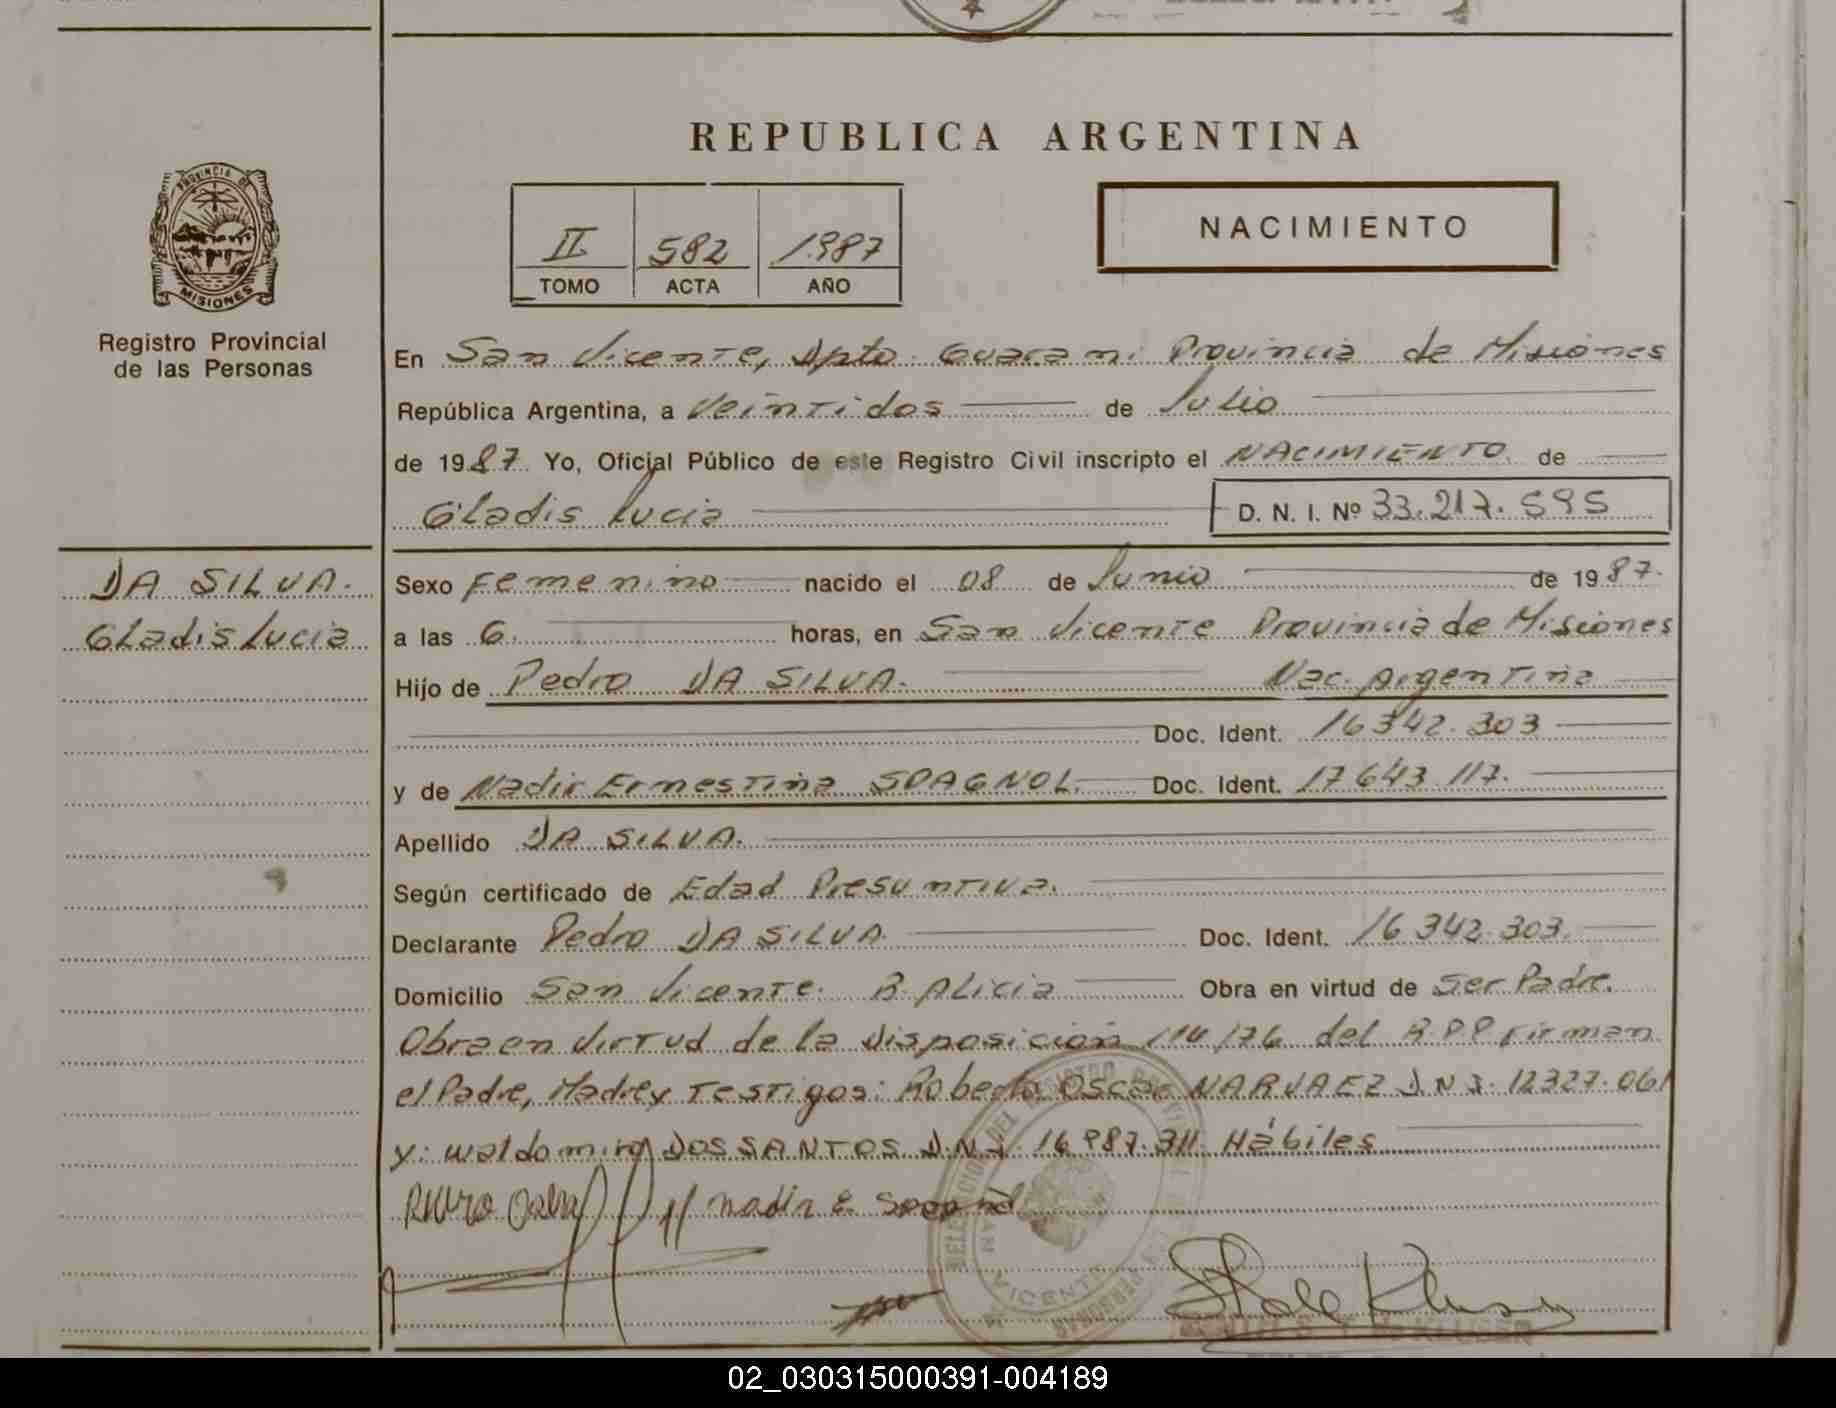 REPUBLICA ARGENTINA
PROVINCIA DE
MISIONES
Registro Provincial
de las Personas
II 582 1987
TOMO ACTA AÑO
NACIMIENTO
En San Vicente, Dpto. Guarani Provincia de Misiones
República Argentina, a Veintidos de Julio
de 1987. Yo, Oficial Público de este Registro Civil inscripto el NACIMIENTO de
Gladis Lucia D. N. I. Nº 33.217.595
DA SILVA.
Gladis Lucia
Sexo Femenino nacido el 08 de Junio de 1987.
a las 6. horas, en San Vicente Provincia de Misiones
Hijo de Pedro DA SILVA. Nac. Argentina
Doc. Ident. 16342.303
y de Nadir Ernestina SPAGNOL. Doc. Ident. 17643.117.
Apellido DA SILVA.
Según certificado de Edad Presuntiva.
Declarante Pedro DA SILVA. Doc. Ident. 16342.303.
Domicilio San Vicente. B. Alicia Obra en virtud de Ser Padre.
Obra en Virtud de la Disposición 114/76 del R.P.P. Firman
el Padre, Madre y Testigos: Roberto Oscar NARVAEZ D.N.I. 12327.061
y: Waldomiro DOS SANTOS. D.N.I. 16987.311. Hábiles
nadir E.
DELEGACION DEL REGISTRO PERSONAS
SAN VICENTE
KLUSER
02_030315000391-004189